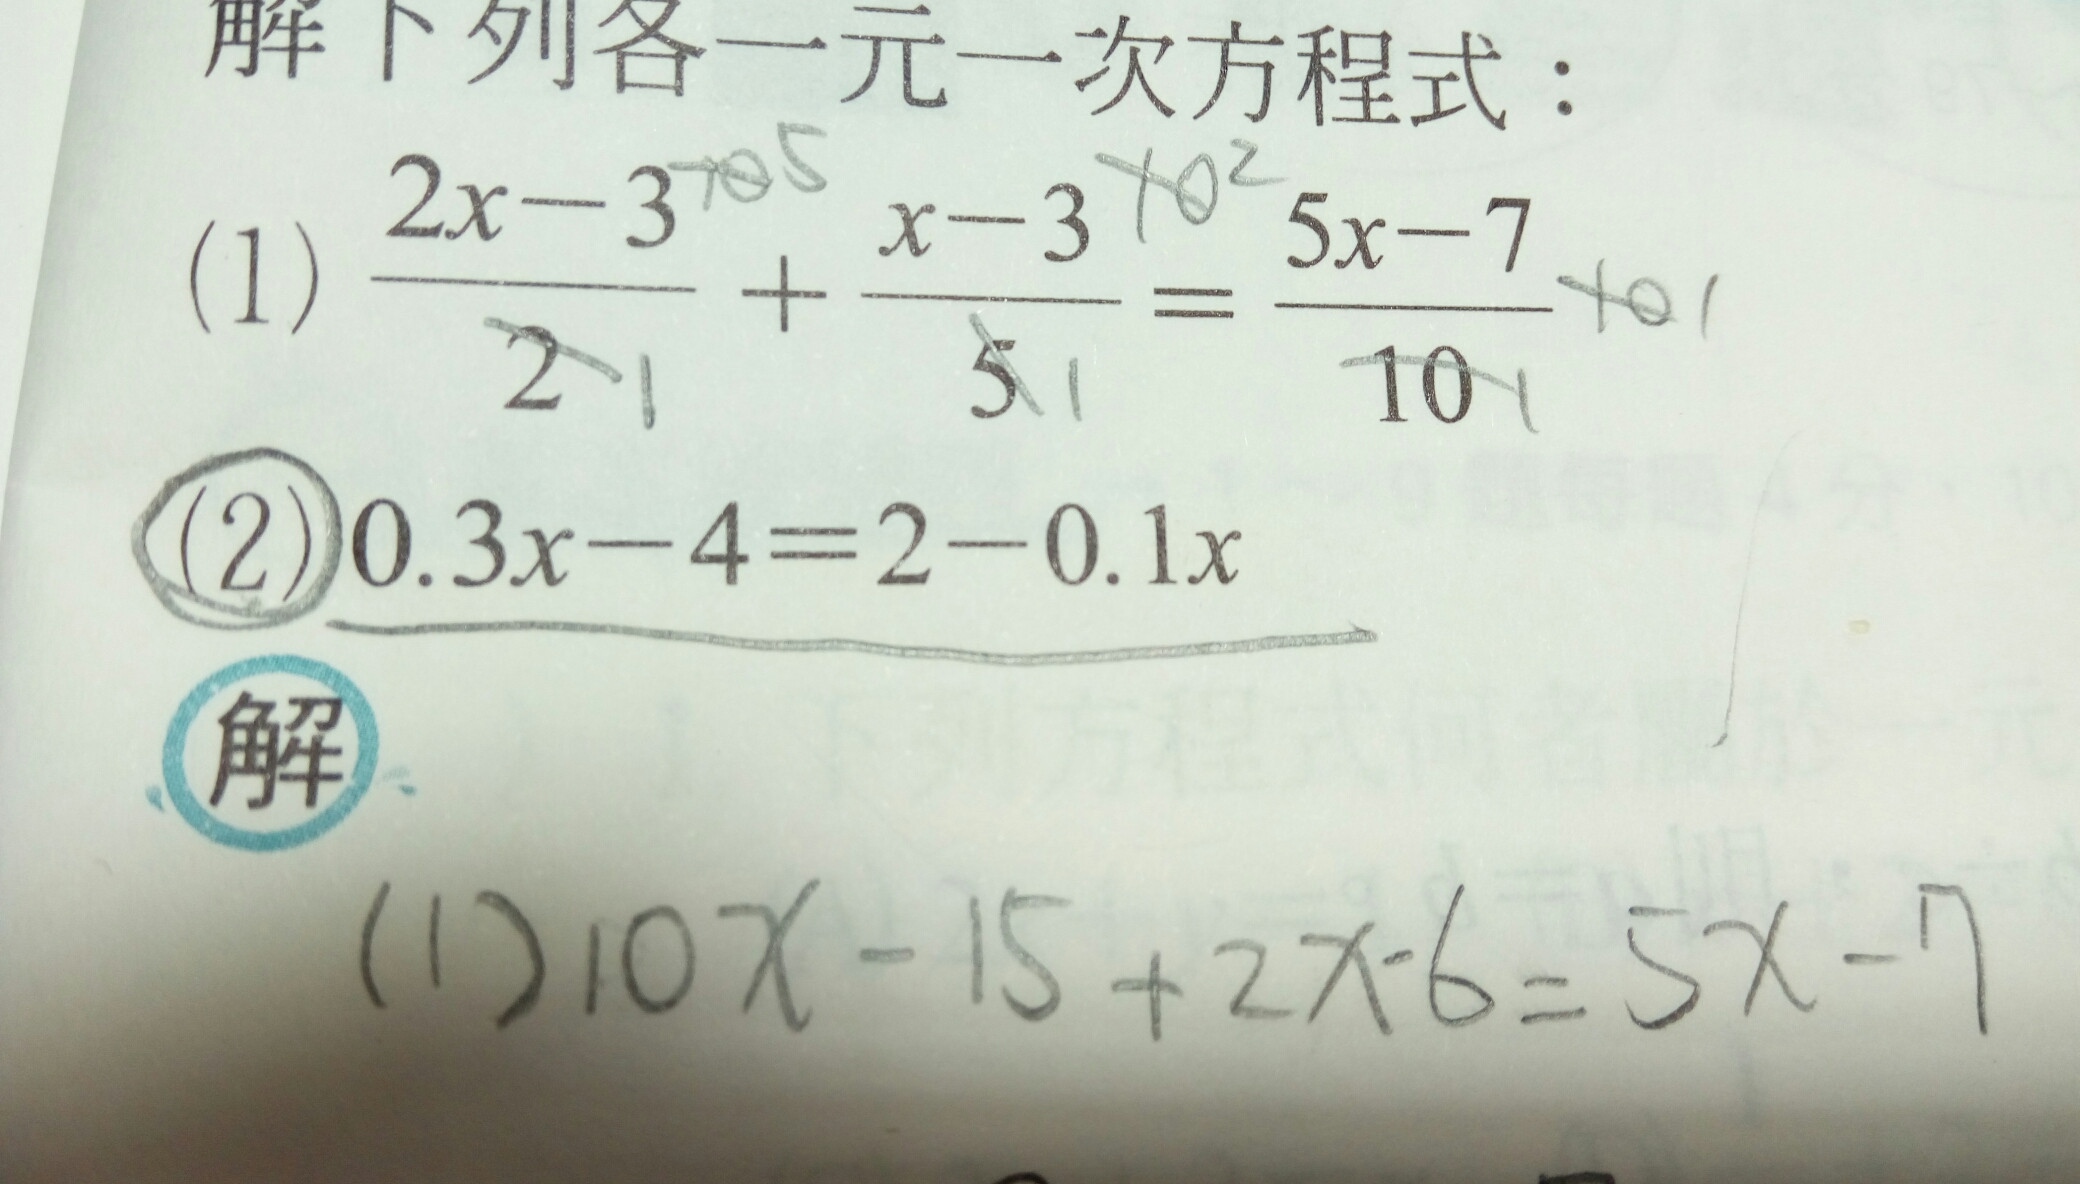 解下列各一元一次方程式：
(1) (2x−3)/2 + (x−3)/5 = (5x−7)/10
(2) 0.3x−4=2−0.1x
解
(1) 10x-15+2x-6=5x-7